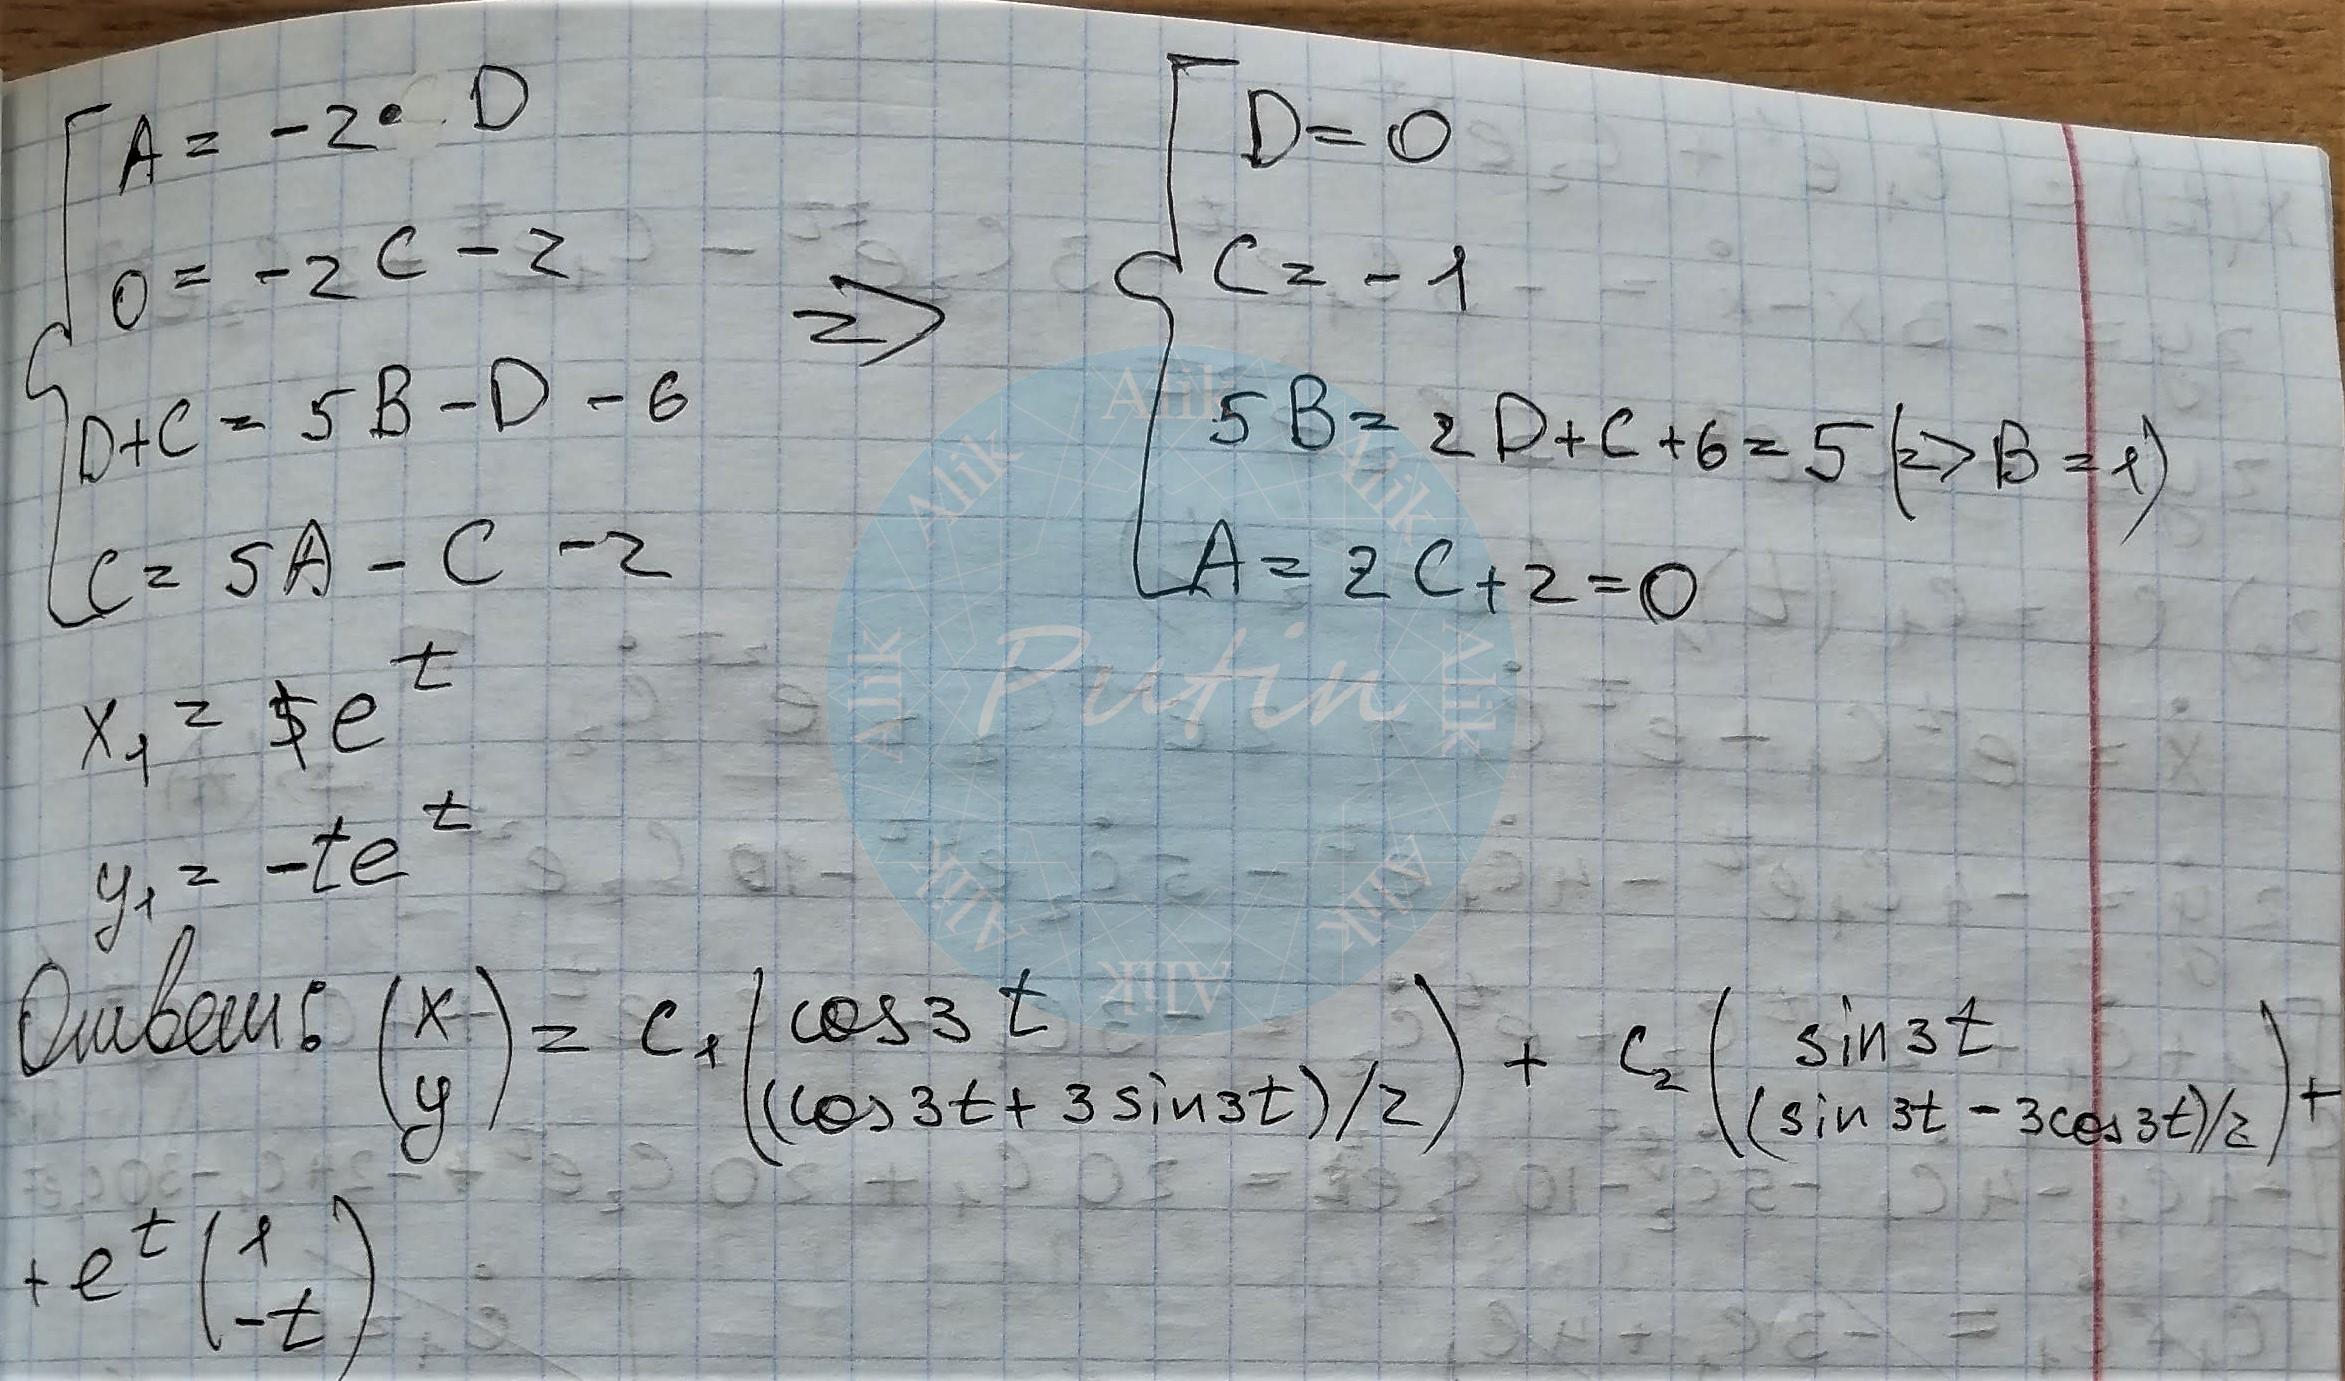 A = -2 · D
0 = -2C - 2
D + C = 5B - D - 6
C = 5A - C - 2
=>
D = 0
C = -1
5B = 2D + C + 6 = 5 (=> B = 1)
A = 2C + 2 = 0
x₁ = e^t
y₁ = -te^t
Ответ: (x y) = C₁ (cos3t (cos3t + 3sin3t)/2) + C₂ (sin3t (sin3t - 3cos3t)/2) +
+ e^t (1 -t)
Alik Alik Alik Alik Alik
Alik Putin Alik
Alik Alik Alik Alik Alik